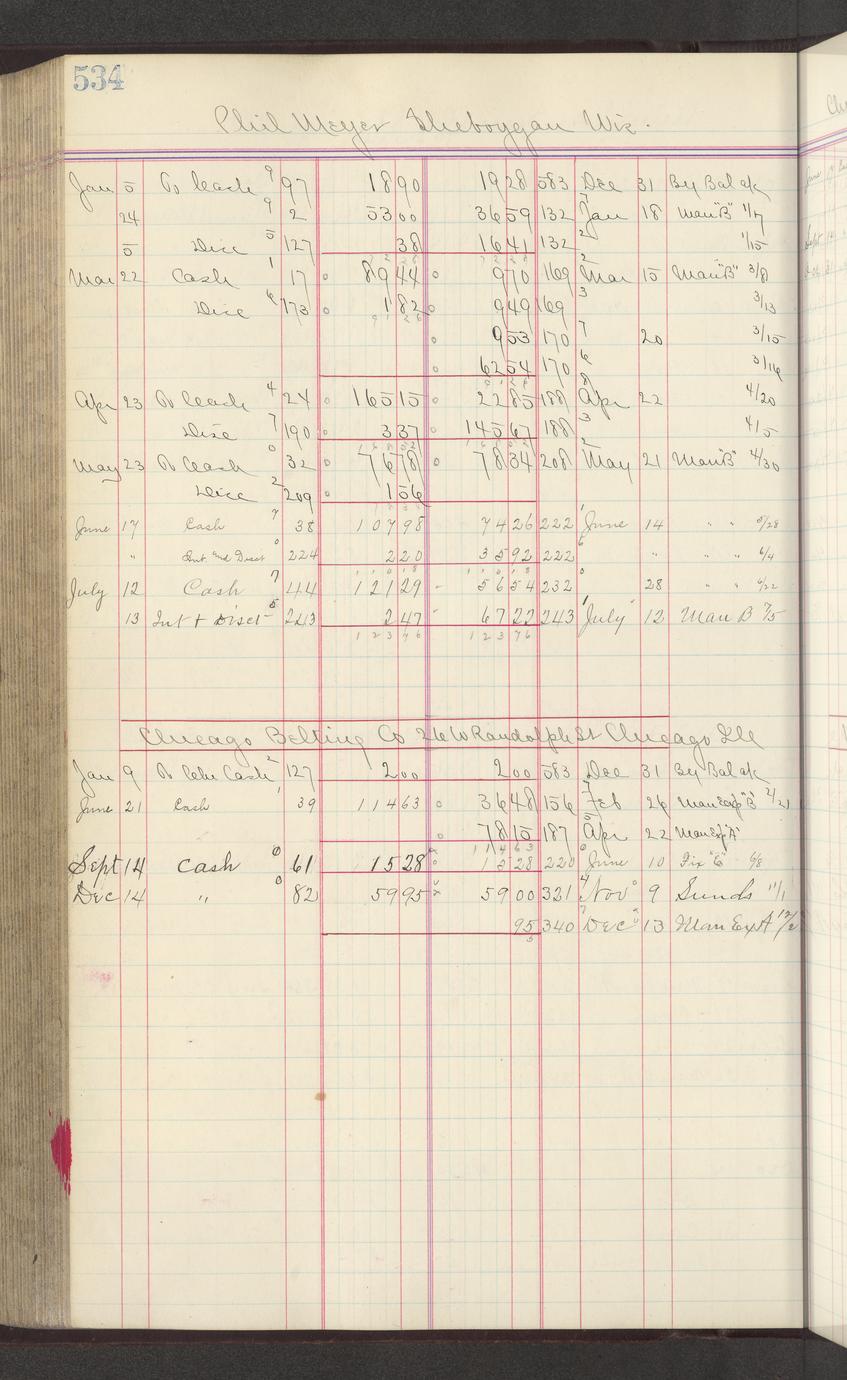 534
Phil Meyer Sheboygan Wis.
Jan 5 To Cash 9 97 18 90 19 28 583 Dec 31 By Bal a/c
24 9 2 53 00 36 59 132 7 Jan 18 Man "B" 1/7
5 Disc 5 127 38 16 41 132 2 1/15
Mar 22 Cash 1 17 89 44 9 70 169 2 Mar 15 Man "B" 3/8
Disc 173 1 82 9 49 169 3 3/13
9 53 170 7 20 3/15
62 54 170 6 3/16
Apr 23 To Cash 4 24 165 15 22 85 188 8 Apr 22 4/20
Disc 7 190 3 37 145 67 188 3 4/5
May 23 To Cash 0 32 76 78 78 34 208 2 May 21 Man "B" 4/30
Disc 2 209 1 56
June 17 Cash 7 38 107 98 74 26 222 1 June 14 " " 5/28
" Int and Disct 0 224 2 20 35 92 222 6 " " " 6/4
July 12 Cash 7 44 121 29 56 54 232 0 28 " " 6/22
13 Int + Disct 5 243 2 47 67 22 243 1 July 12 Man B 7/5
123 76 123 76
Chicago Belting Co 26 W Randolph St Chicago Ill
Jan 9 To Cash 2 127 2 00 2 00 583 Dec 31 By Bal a/c
June 21 Cash 1 39 114 63 36 48 156 7 Feb 26 Man Exp "B" 2/21
78 15 187 5 Apr 22 Man Exp "A"
114 63
Sept 14 Cash 0 61 15 28 15 28 220 0 June 10 Fix "C" 6/8
Dec 14 " 0 82 59 95 59 00 321 4 Nov 9 Sunds 11/1
95 340 7 Dec 13 Man Ex A 12/2